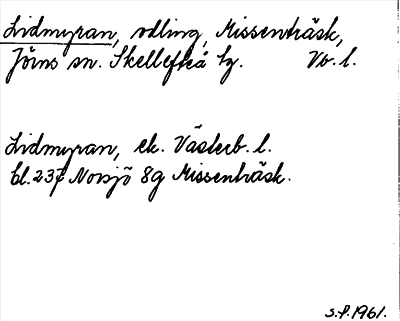 Lidmyran, odling, Missenträsk,
Jörns sn. Skellefteå tg. Vb. l.
Lidmyran, ek. Västerb. l.
bl. 237 Norsjö 8g Missenträsk.
S.P. 1961.